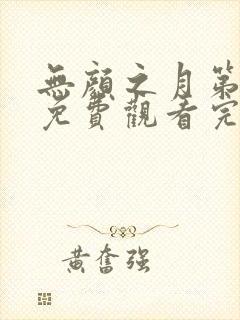 無顏之月第
免費觀看完
黃奮强